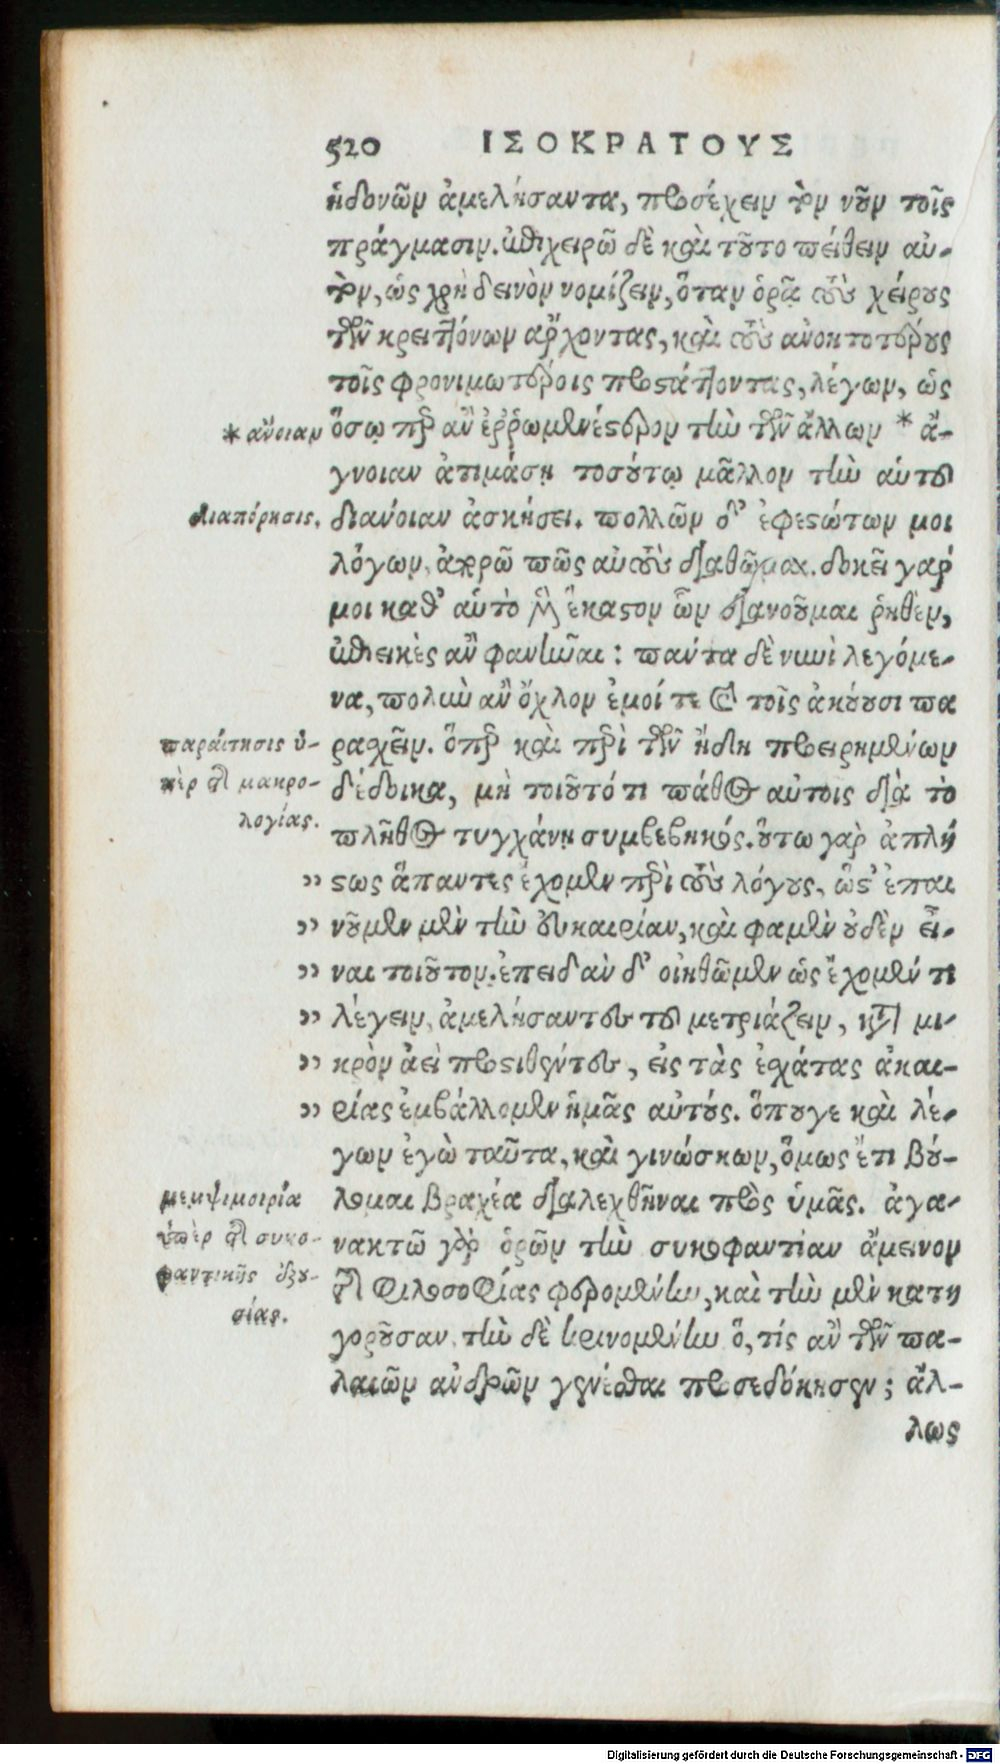 520 ΙΣΟΚΡΑΤΟΥΣ
ἡδονῶν ἀμελήσαντα, προσέχειν τὸν νοῦν τοῖς
πράγμασιν. ἐπιχειρῶ δὲ καὶ τοῦτο πείθειν αὐ-
τὸν, ὡς χρὴ δεινὸν νομίζειν, ὅταν ὁρᾷ τοὺς χείρους
τῶν κρειττόνων ἄρχοντας, καὶ τοὺς ἀνοητοτέρους
τοῖς φρονιμωτέροις προστάττοντας, λέγων, ὡς
* ἄνοιαν
ὅσῳ περ ἂν ἐῤῥωμενέστερον τὴν τῶν ἄλλων * ἄ-
γνοιαν ἀτιμάσῃ τοσούτῳ μᾶλλον τὴν αὑτοῦ
διαπόρησις.
διάνοιαν ἀσκήσει. πολλῶν δ' ἐφεστώτων μοι
λόγων, ἀπορῶ πῶς αὐτοὺς διαθῶμαι. δοκεῖ γάρ
μοι καθ' αὑτὸ μὲν ἕκαστον ὧν διανοοῦμαι ῥηθὲν,
ἐπιεικὲς ἂν φανῆναι: πάντα δὲ νυνὶ λεγόμε-
να, πολὺν ἂν ὄχλον ἐμοί τε καὶ τοῖς ἀκούουσι πα
παραίτησις ὑ-
πὲρ τῆς μακρο-
λογίας.
ρασχεῖν. ὅπερ καὶ περὶ τῶν ἤδη προειρημένων
δέδοικα, μὴ τοιοῦτό τι πάθος αὐτοις διὰ τὸ
πλῆθος τυγχάνῃ συμβεβηκός. οὕτω γὰρ ἀπλή
" στως ἅπαντες ἔχομεν περὶ τοὺς λόγους, ὥστ' ἐπαι
" νοῦμεν μὲν τὴν εὐκαιρίαν, καὶ φαμὲν οὐδὲν εἶ-
" ναι τοιοῦτον. ἐπειδὰν δ' οἰηθῶμεν ὡς ἔχομέν τι
" λέγειν, ἀμελήσαντες τοῦ μετριάζειν, κατὰ μι-
" κρὸν ἀεὶ προστιθέντες, εἰς τὰς ἐσχάτας ἀκαι-
" ρίας ἐμβάλλομεν ἡμᾶς αὐτούς. ὅπουγε καὶ λέ-
γων ἐγὼ ταῦτα, καὶ γινώσκων, ὅμως ἔτι βού-
μεμψιμοιρία
ὑπὲρ τῆς συκο-
φαντικῆς ἐξου-
σίας.
λομαι βραχέα διαλεχθῆναι πρὸς ὑμᾶς. ἀγα-
νακτῶ γὰρ ὁρῶν τὴν συκοφαντίαν ἄμεινον
τῆς φιλοσοφίας φερομένην, καὶ τὴν μὲν κατη
γοροῦσαν, τὴν δὲ κρινομένην ὅ, τίς ἂν τῶν πα-
λαιῶν ἀνδρῶν γενέσθαι προσεδόκησεν; ἄλ-
λως
Digitalisierung gefördert durch die Deutsche Forschungsgemeinschaft - DFG